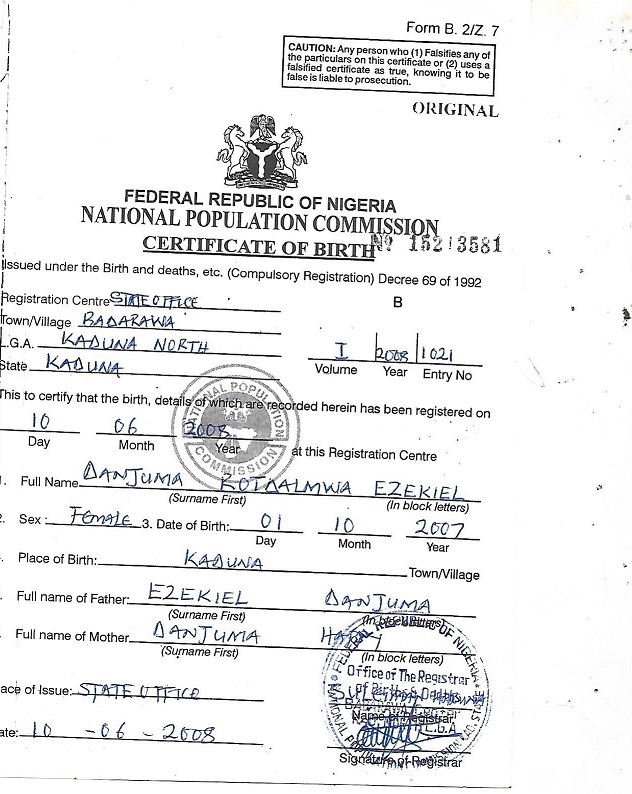 Form B. 2/Z. 7
CAUTION: Any person who (1) Falsifies any of
the particulars on this certificate or (2) uses a
falsified certificate as true, knowing it to be
false is liable to prosecution.
ORIGINAL
FEDERAL REPUBLIC OF NIGERIA
NATIONAL POPULATION COMMISSION
CERTIFICATE OF BIRTH Nº 15213581
Issued under the Birth and deaths, etc. (Compulsory Registration) Decree 69 of 1992
Registration Centre STATE OFFICE B
Town/Village BADARAWA
L.G.A. KADUNA NORTH I 2008 1021
State KADUNA Volume Year Entry No
This to certify that the birth, details of which are recorded herein has been registered on
10 06 2008
Day Month Year at this Registration Centre
NATIONAL POPULATION COMMISSION
1. Full Name DANJUMA EZEKIEL
(Surname First) (In block letters)
2. Sex: FEMALE 3. Date of Birth: 01 10 2007
Day Month Year
Place of Birth: KADUNA Town/Village
Full name of Father: EZEKIEL DANJUMA
(Surname First) (In block letters)
Full name of Mother DANJUMA
(Surname First) (In block letters)
FEDERAL REPUBLIC OF NIGERIA
Office of The Registrar
of Births & Deaths
ace of Issue: STATE OFFICE
Name of Registrar
L.G.A
ate: 10 - 06 - 2008
Signature of Registrar